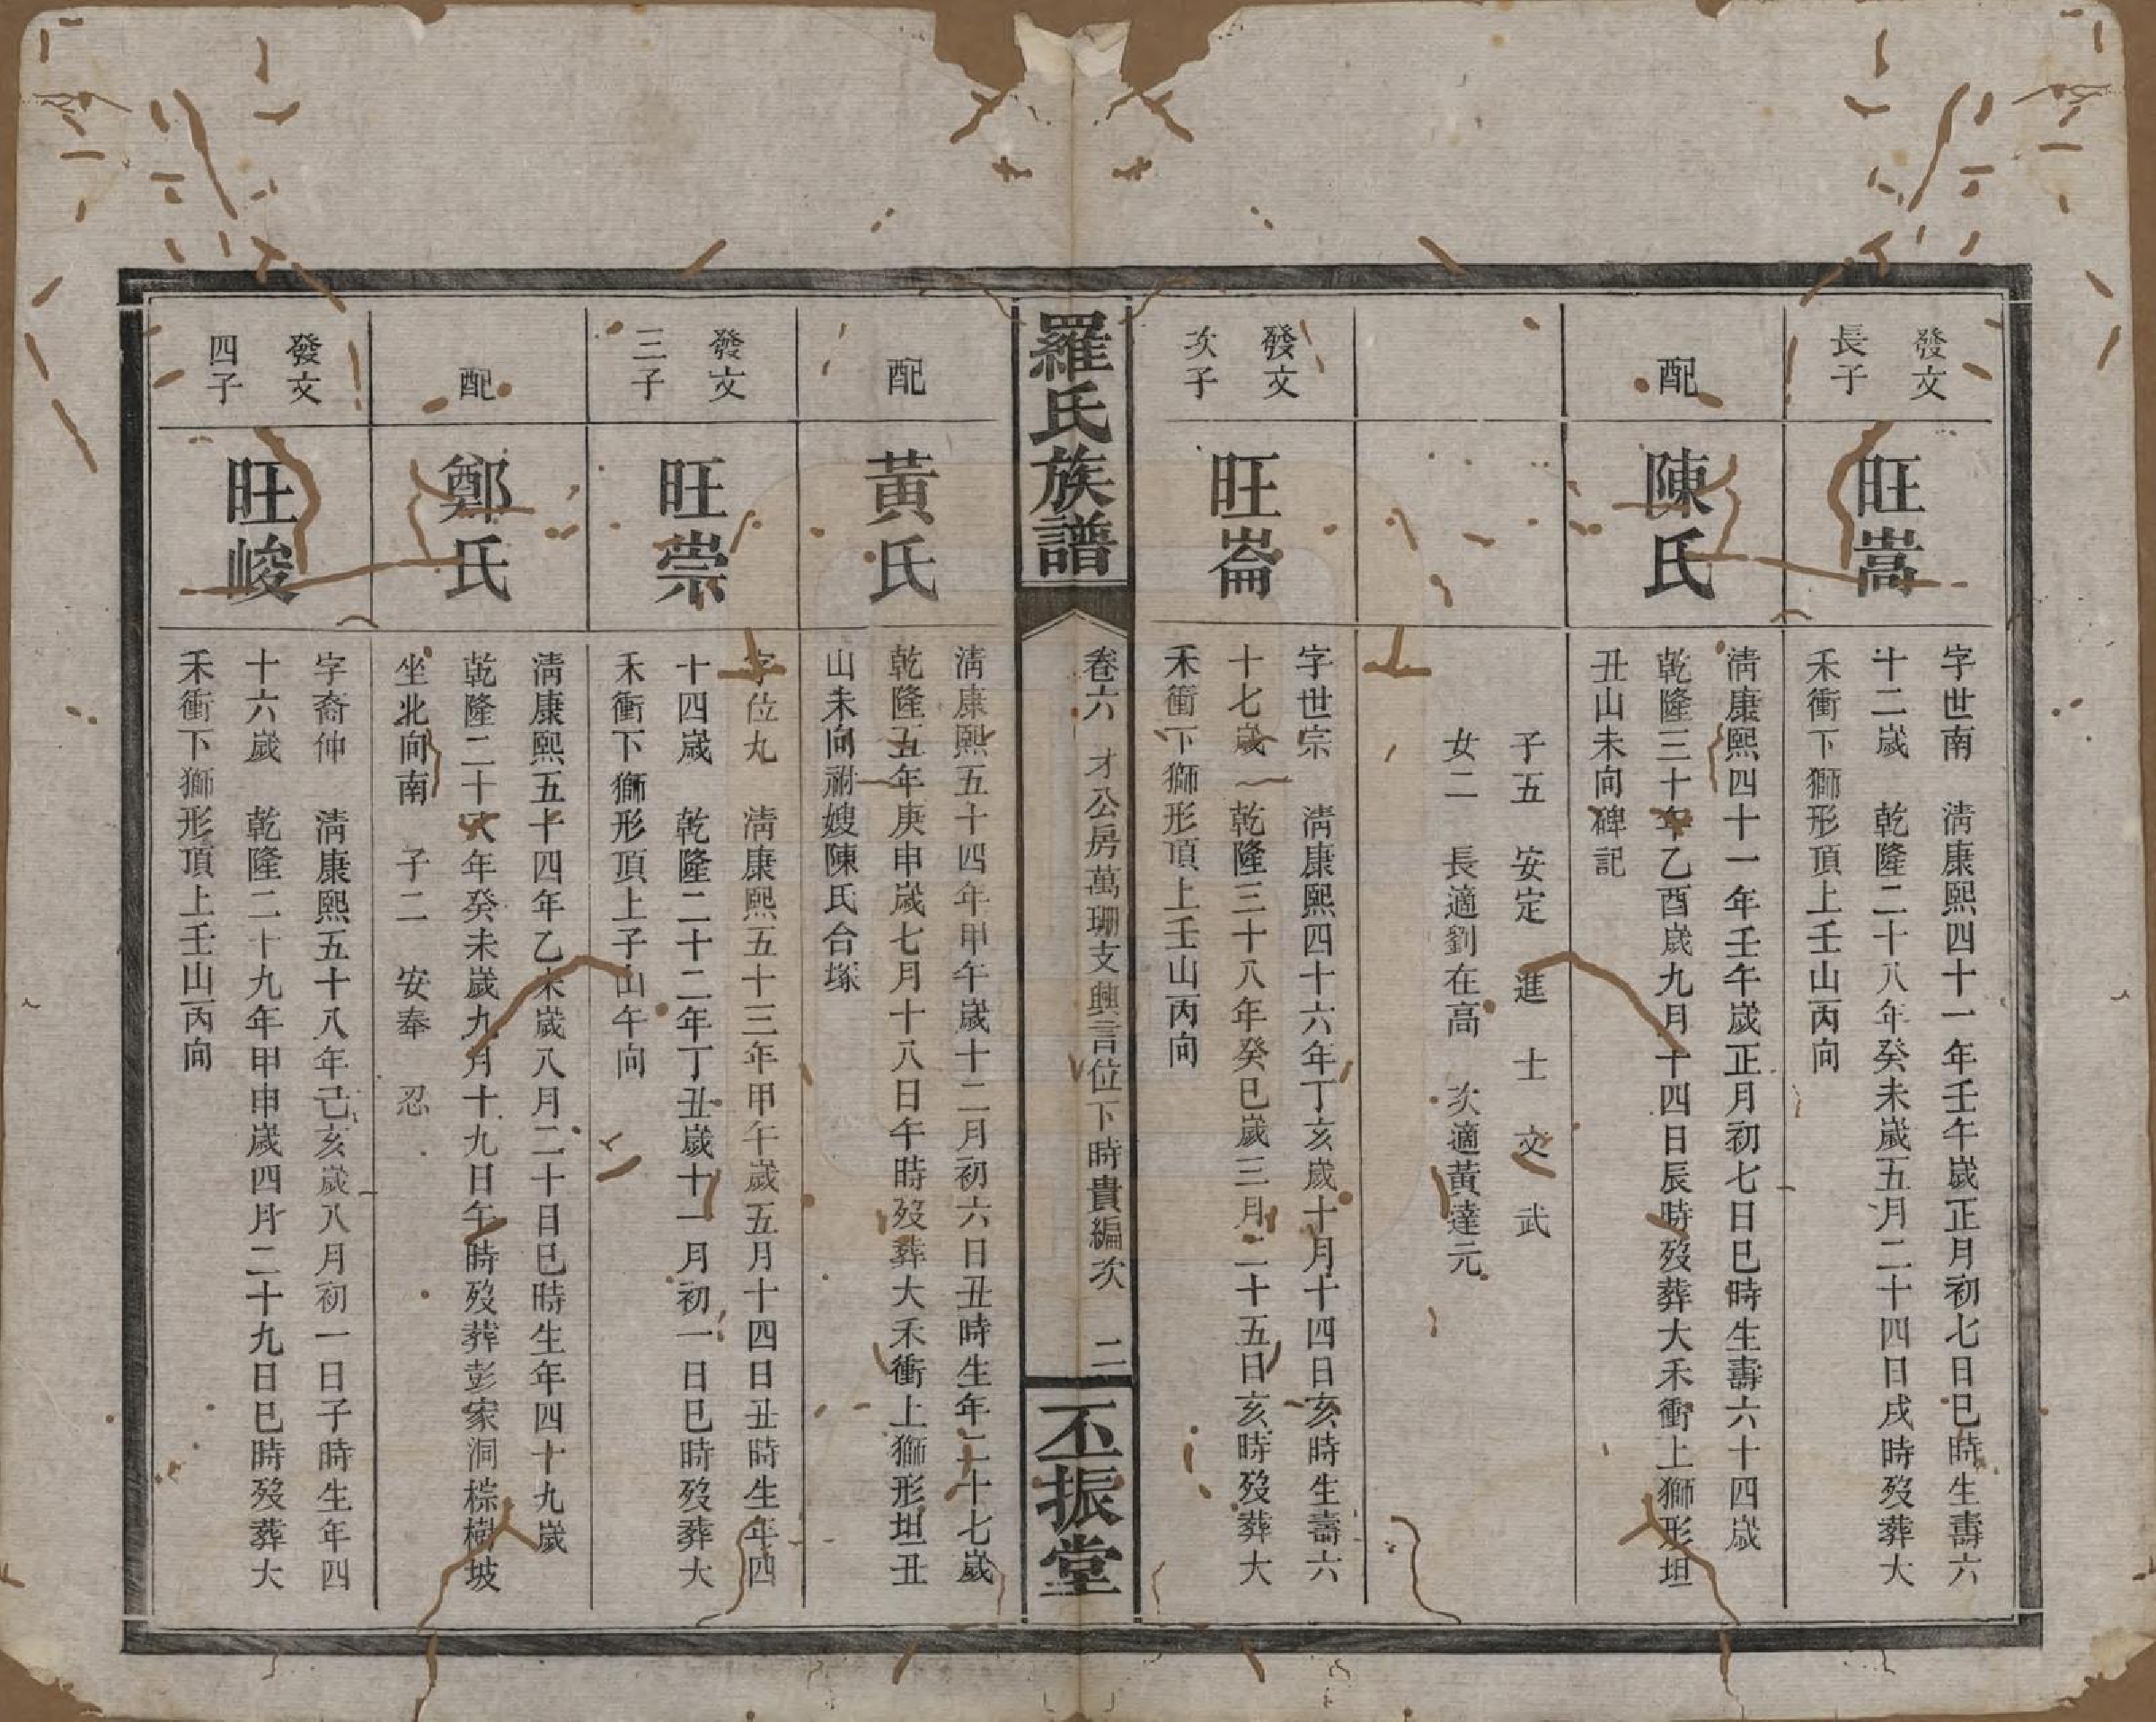 發文
長子
旺嵩
字世南　清康熙四十一年壬午歲正月初七日巳時生壽六
十二歲　乾隆二十八年癸未歲五月二十四日戌時歿葬大
禾衝下獅形頂上壬山丙向
配
陳氏
清康熙四十一年壬午歲正月初七日巳時生壽六十四歲
乾隆三十年乙酉歲九月十四日辰時歿葬大禾衝上獅形坦
丑山未向碑記
子五　安定　進　士　交　武
女二　長適劉在高　次適黃達元
發文
次子
旺崙
字世宗　清康熙四十六年丁亥歲十月十四日亥時生壽六
十七歲　乾隆三十八年癸巳歲三月二十五日亥時歿葬大
禾衝下獅形頂上壬山丙向
羅氏族譜
卷六　才公房萬珊支興言位下時貴編次　二
丕振堂
配
黃氏
清康熙五十四年甲午歲十二月初六日丑時生年二十七歲
乾隆五年庚申歲七月十八日午時歿葬大禾衝上獅形坦丑
山未向祔嫂陳氏合塚
發文
三子
旺崇
字位丸　清康熙五十三年甲午歲五月十四日丑時生年四
十四歲　乾隆二十二年丁丑歲十一月初一日巳時歿葬大
禾衝下獅形頂上子山午向
配
鄭氏
清康熙五十四年乙未歲八月二十日巳時生年四十九歲
乾隆二十八年癸未歲九月十九日午時歿葬彭家洞棕樹坡
坐北向南　子二　安奉　忍
發文
四子
旺峻
字裔仲　清康熙五十八年己亥歲八月初一日子時生年四
十六歲　乾隆二十九年甲申歲四月二十九日巳時歿葬大
禾衝下獅形頂上壬山丙向